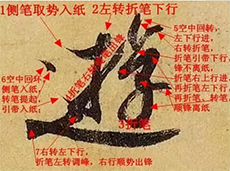 1侧笔取势入纸 2左转折笔下行
5空中回转
左下行进,
右转折笔,
折笔引带下行,
锋不离纸,
折笔右上行进,
再折笔左下行,
再折笔、转笔,
顺锋离纸
6空中回环,
侧笔切入,
转笔提起,
引带入纸
3折笔
7右转左下行,
折笔左转调峰,右行顺势出锋
遊